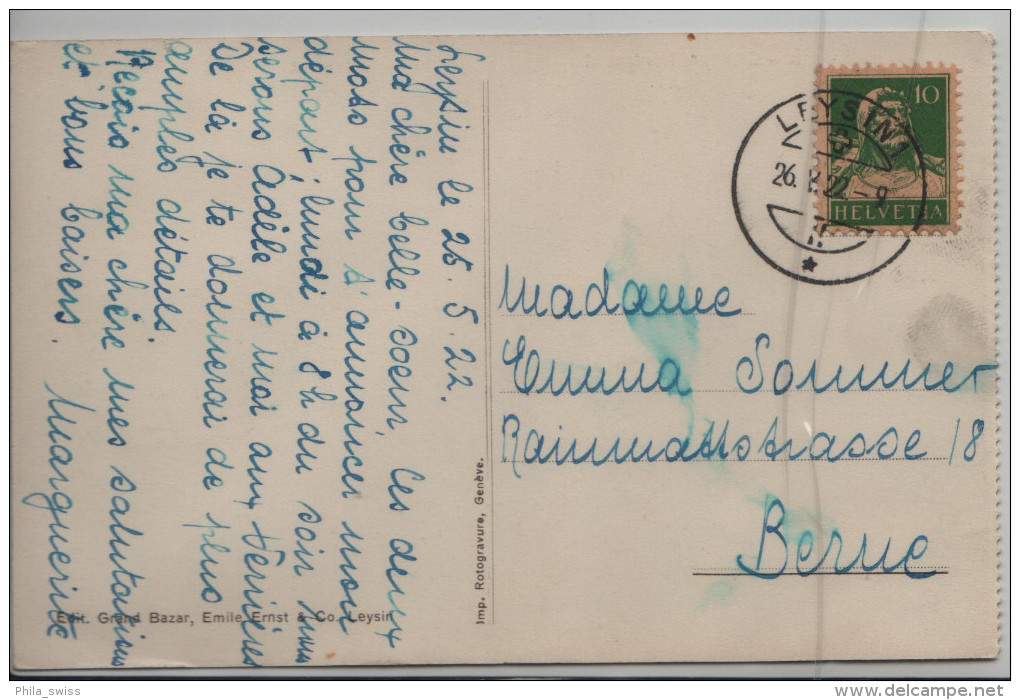 Leysin le 25. 5. 22.
Ma chère belle-soeur, Ces deux
mots pour t'annoncer mon
départ; lundi à 8h du soir nous
serons Adèle et moi aux Verrières
De là je te donnerai de plus
amples détails.
Reçois ma chère mes salutations
et bons baisers. Marguerite
Edit. Grand Bazar, Emile Ernst & Co. Leysin
Imp. Rotogravure, Genève.
10
HELVETIA
LEYSIN
26. V. 22. - 9
Madame
Emma Sommer
Rainmattstrasse 18
Berne
Phila_swiss
delcampe.net